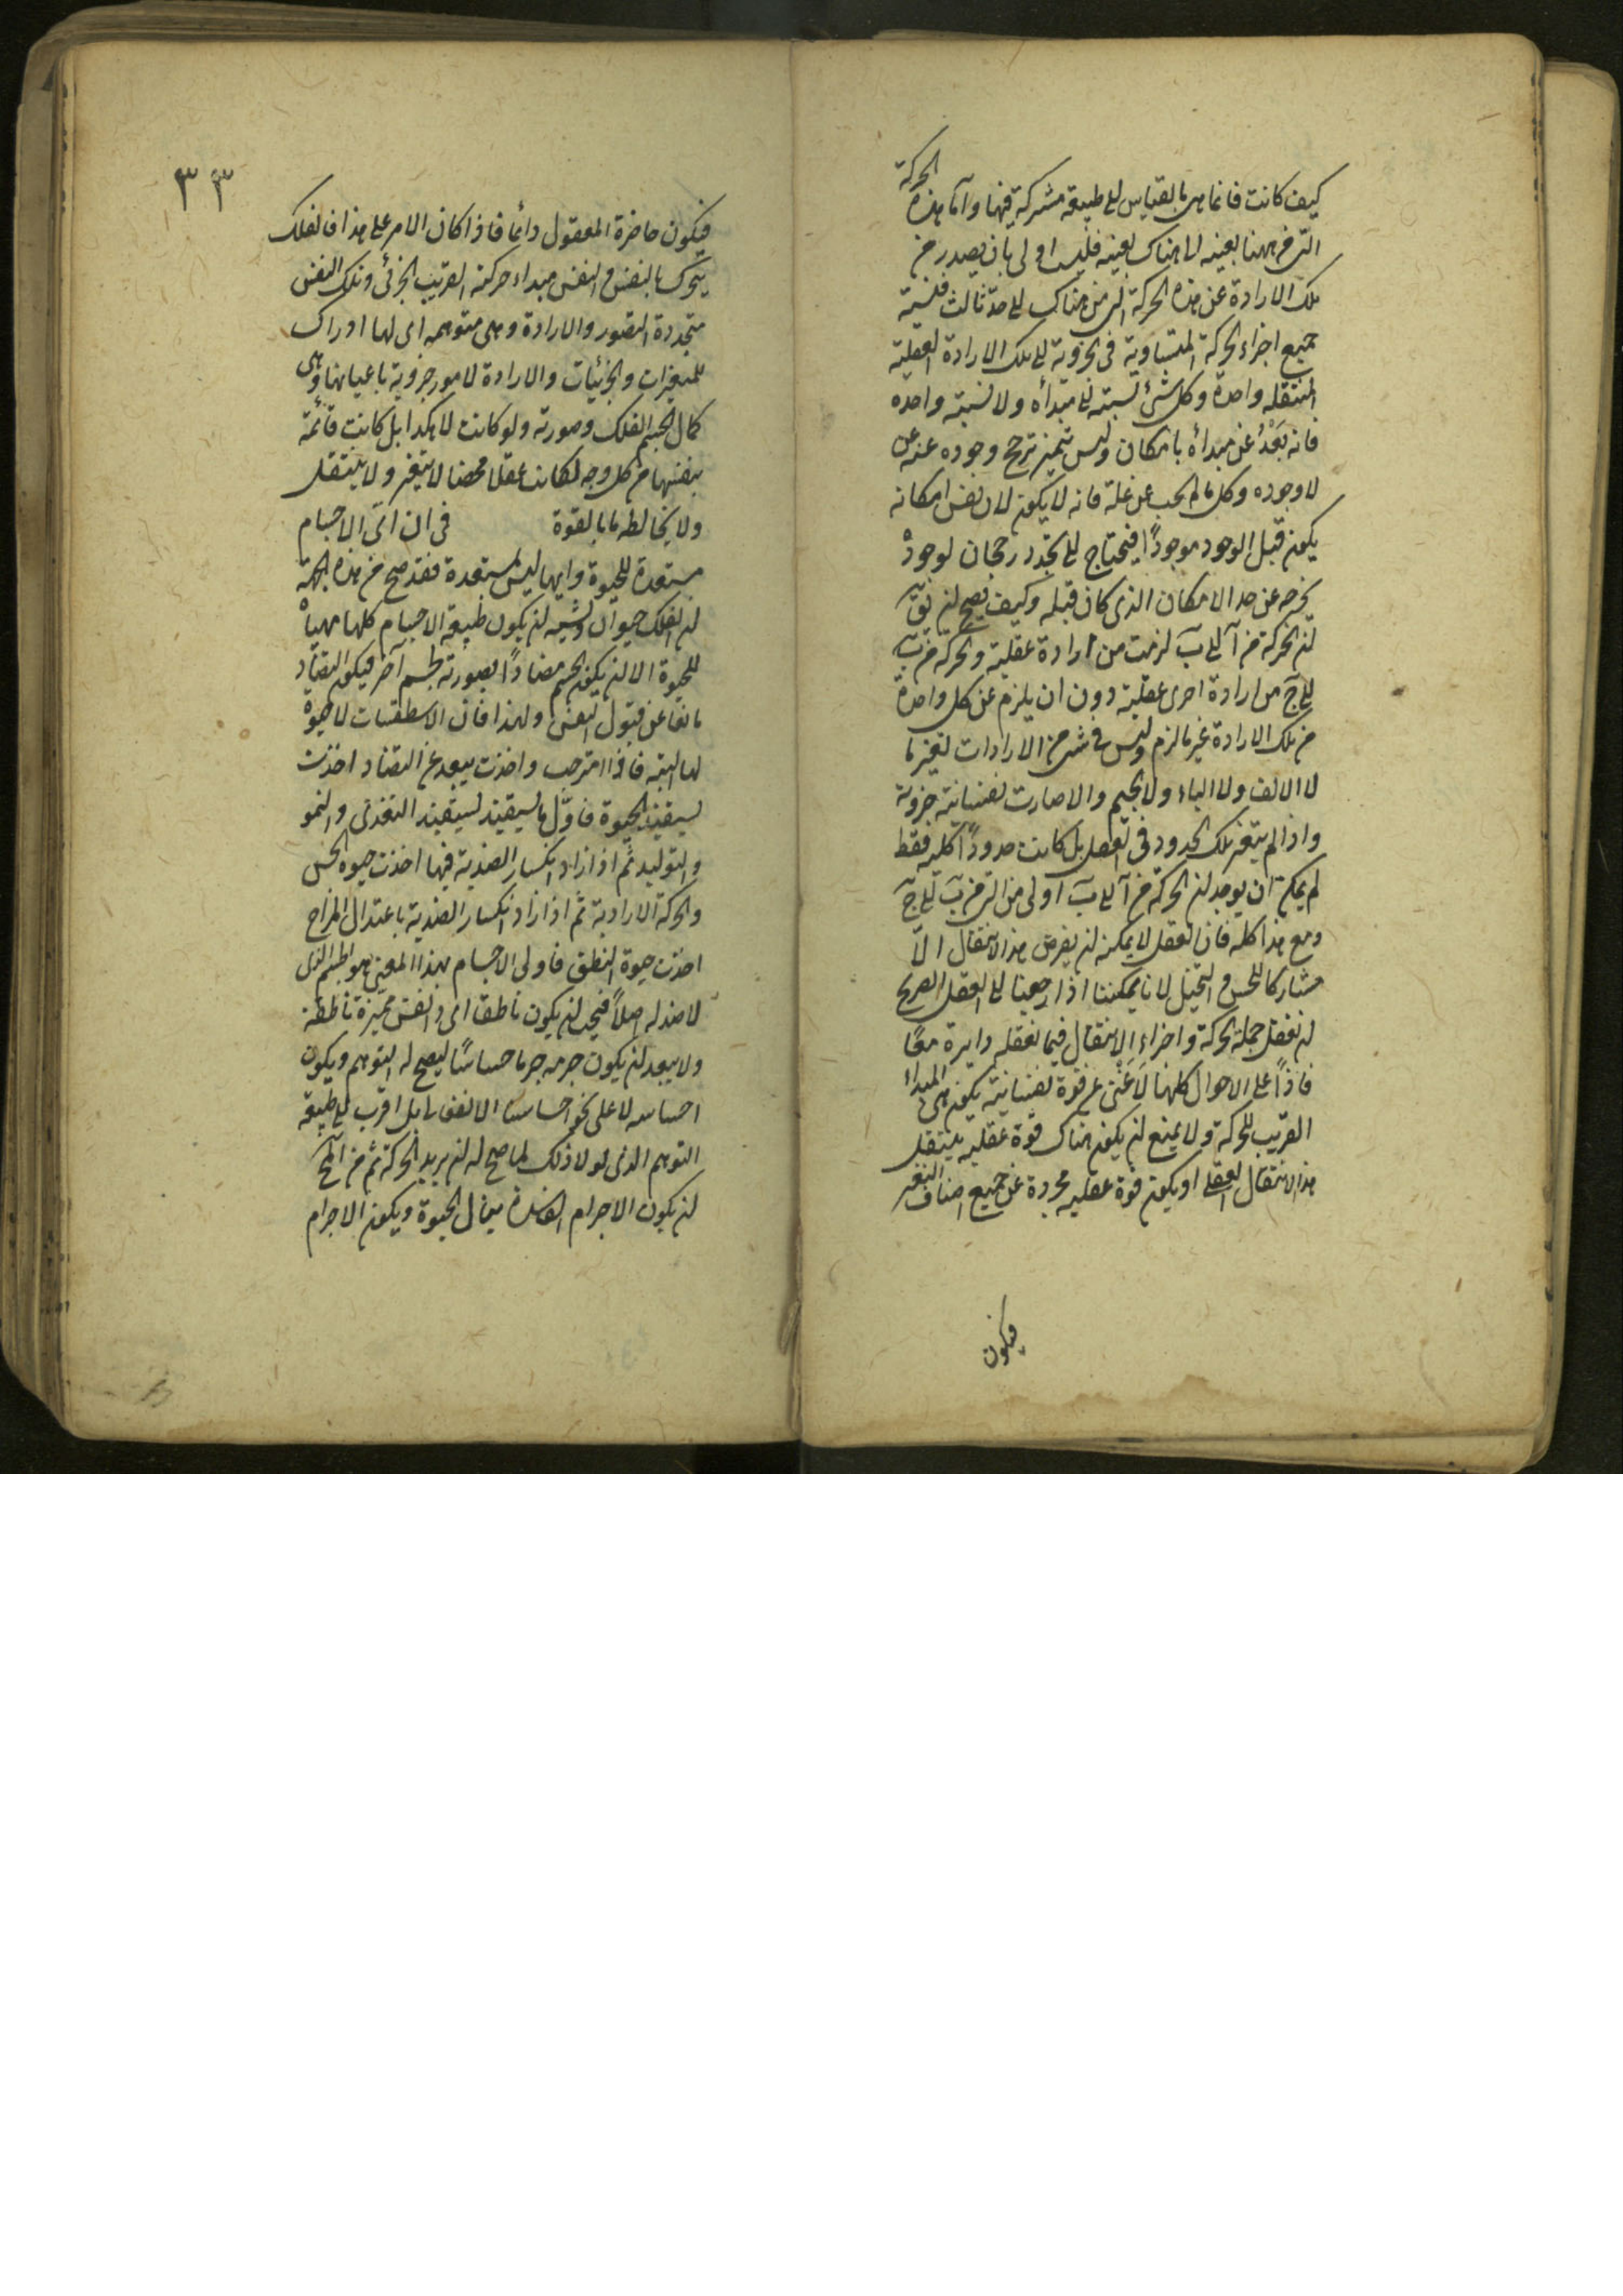 كيف كانت فانما هى بالقياس الى طبيعة مشتركة فيها واما هذه الحركة
التى من ههنا بعينه الى هناك بعينه فليست اولى بان يصدر من
تلك الارادة عن هذه الحركة التى من هناك الى حد ثالث فنسبة
جميع اجزاء الحركة المتساوية فى الجزوية الى تلك الارادة العقلية
المنتقله واحدة وكل شئ نسبته الى مبدأه ولا نسبته واحده
فانه بَعْدُ عن مبدأه بامكان وليس تميز ترجح وجوده عنه عن
لاوجوده وكل ما لم يجب عن علة فانه لا يكون لان نفس امكانه
يكون قبل الوجود موجودًا فيحتاج الى تجدد رجحان لوجوده
يخرجه عن حد الامكان الذى كان قبله وكيف يصح ان يق
ان الحركة من آ الى ب لزمت من ارادة عقلية والحركة من ب
الى ج من ارادة اخرى عقلية دون ان يلزم عن كل واحدة
من تلك الارادة غير ما لزم وليس فى شئ من الارادات تغير ما
لا الالف ولا الباء ولا الجيم والا صارت نفسانية جزوية
واذا لم يتغير تلك الحدود فى العقل بل كانت حدودًا كلية فقط
لم يمكن ان يوجد ان الحركة من آ الى ب اولى من التى من ب الى ج
ومع هذا كله فان العقل لا يمكنه ان يفرض هذا الانتقال الّا
مشاركا للحس والتخيل لانا يمكننا اذا رجعنا الى العقل الصريح
ان نعقل جملة الحركة واجزاء الانتقال فيما نعقله دايرة معًا
فاذًا على الاحوال كلها لا غنى عن قوة نفسانية يكون هى المبداء
القريب للحركة ولا يمنع ان يكون هناك قوة عقلية ينتقل
هذا الانتقال العقلى او يكون قوة عقلية مجردة عن جميع اصناف التغير
فيكون
٣٣
فيكون حاضرة المعقول دائما فاذا كان الامر على هذا فالفلك
يتحرك بالنفس والنفس مبداء حركته القريب الجزئى وتلك النفس
متجددة التصور والارادة وهى متوهمه اى لها ادراك
للمتغيرات والجزئيات والارادة لامور جزوية باعيانها وهى
كمال الجسم الفلك وصورته ولو كانت لا هكذا بل كانت قائمة
بنفسها من كل وجه لكانت عقلا محضا لا يتغير ولا ينتقل
ولا يخالطه ما بالقوة فى ان اىّ الاجسام
مستعدة للحيوة وايها ليس بمستعدة فقد صح من هذه الجهة
ان الفلك حيوان ويشبه ان يكون طبيعة الاجسام كلها مهيأة
للحيوة الا ان يكون الجسم مضادًا بصورته لجسم آخر فيكون التضاد
مانعًا عن قبول النفس ولهذا فان الاسطقسات لا حيوة
لها البتة فاذا امتزجت واخذت يبعد عن التضاد اخذت
يستفيد الحيوة فاوّل ما يستفيد يستفيد التغذى والنمو
والتوليد ثم اذا ازداد انكسار الضدية فيها اخذت حيوة الحس
والحركة الارادية ثم اذا ازداد انكسار الضدية باعتدال المزاج
اخذت حيوة النطق فاولى الاجسام بهذا المعنى هو الجسم الذى
لا ضد له اصلًا فيجب ان يكون ناطقا اى ذا نفس مميزة ناطقة
ولا يبعد ان يكون جرمه جرما حساسًا ليصح له التوهم ويكون
احساسه لا على نحو احساسنا الانفعالى بل اقرب الى طبيعة
التوهم الذى لولا ذلك لما صح له ان يريد الحركة ثم من المح
ان يكون الاجرام الفاسدة ينال الحيوة ويكون الاجرام